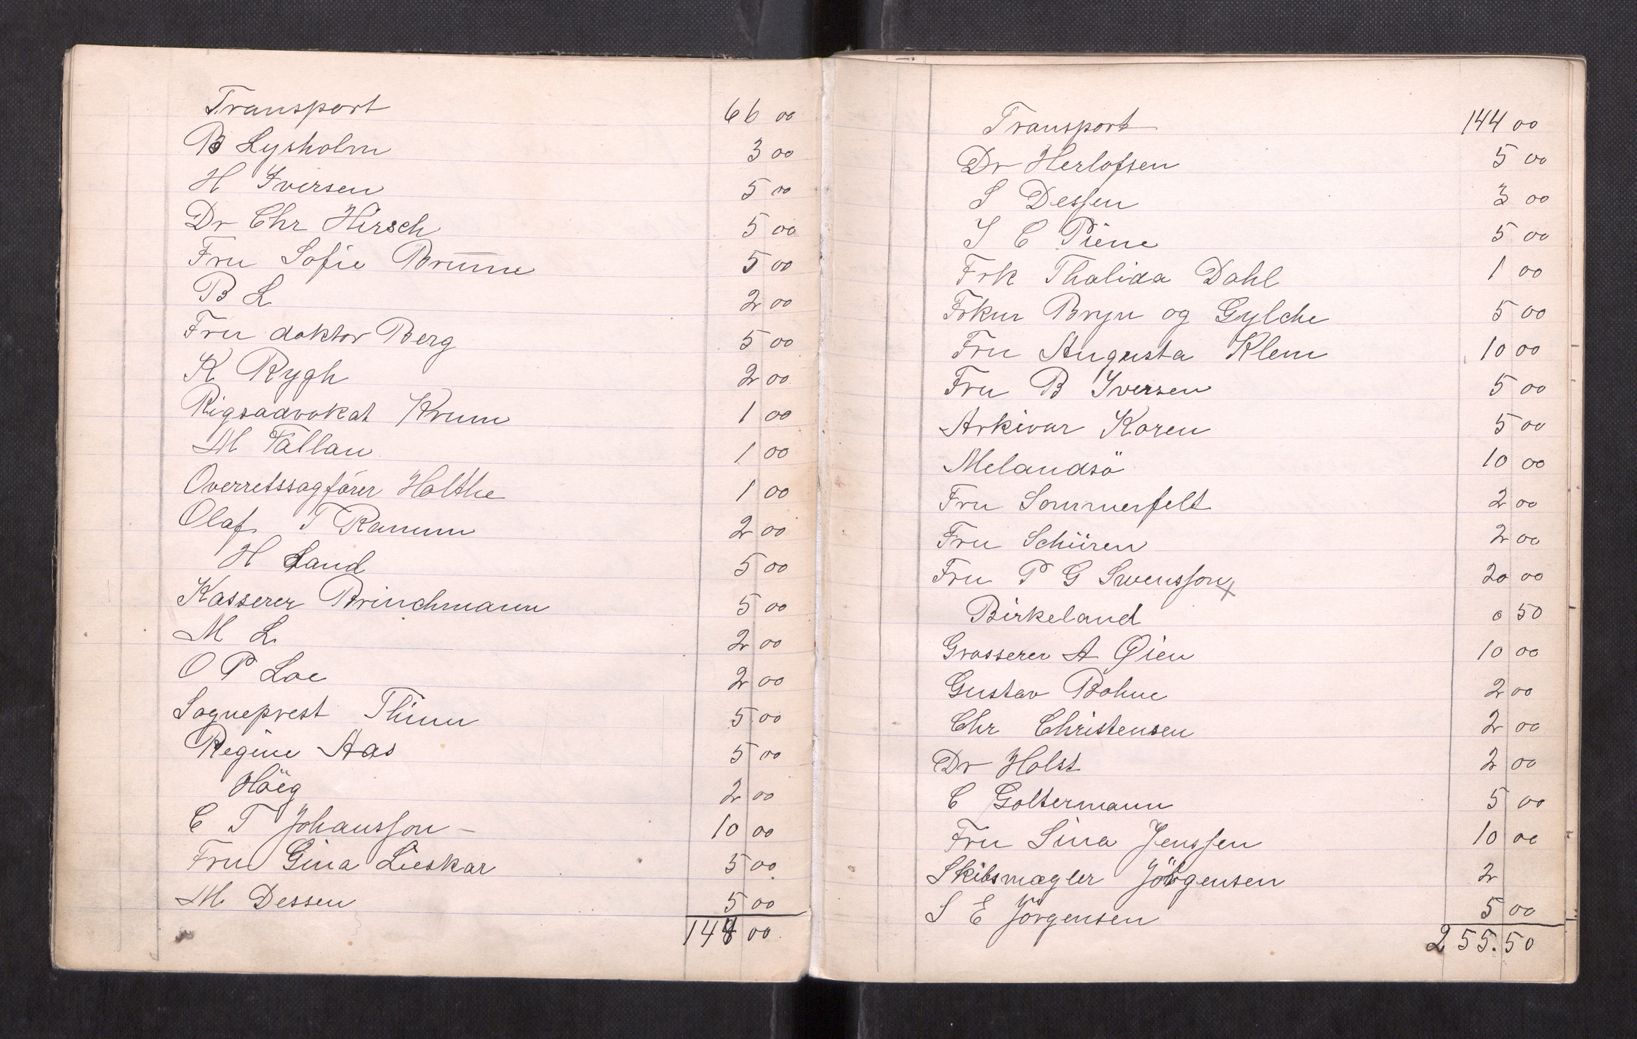 Transport 66 00
B Lysholm 3 00
H Iversen 5 00
Dr Chr Hirsch 5 00
Fru Sofie Brunne 5 00
B L 2 00
Fru doktor Berg 5 00
K Rygh 2 00
Rigsadvokat Krum 1 00
M Fallan 1 00
Overretssagfører Holthe 1 00
Olaf T Ramm 2 00
H Sand 5 00
Kasserer Brinchmann 5 00
M L 2 00
O P Loe 2 00
Sogneprest Thinn 5 00
Regine Aas 5 00
Höeg 2 00
C T Johansson – 10 00
Fru Gina Lieskar 5 00
M Dessen 5 00
144 00
Transport 144 00
Dr Herlofsen 5 00
S Dessen 3 00
I C Piene 5 00
Frk Thalida Dahl 1 00
Frknr Bryn og Gylche 5 00
Fru Augusta Klem 10 00
Fru B Iversen 5 00
Arkivar Koren 5 00
Melandsö 10 00
Fru Sommerfelt 2 00
Fru Schüren 2 00
Fru P G Swensson x 20 00
Birkeland 0 50
Grosserer A Øien 10 00
Gustav Bohne 2 00
Chr Christensen 2 00
Dr Holst 2 00
C Goltermann 5 00
Fru Sina Jenssen 10 00
Skibsmægler Jörgensen 2
S E Jörgensen 5 00
255.50